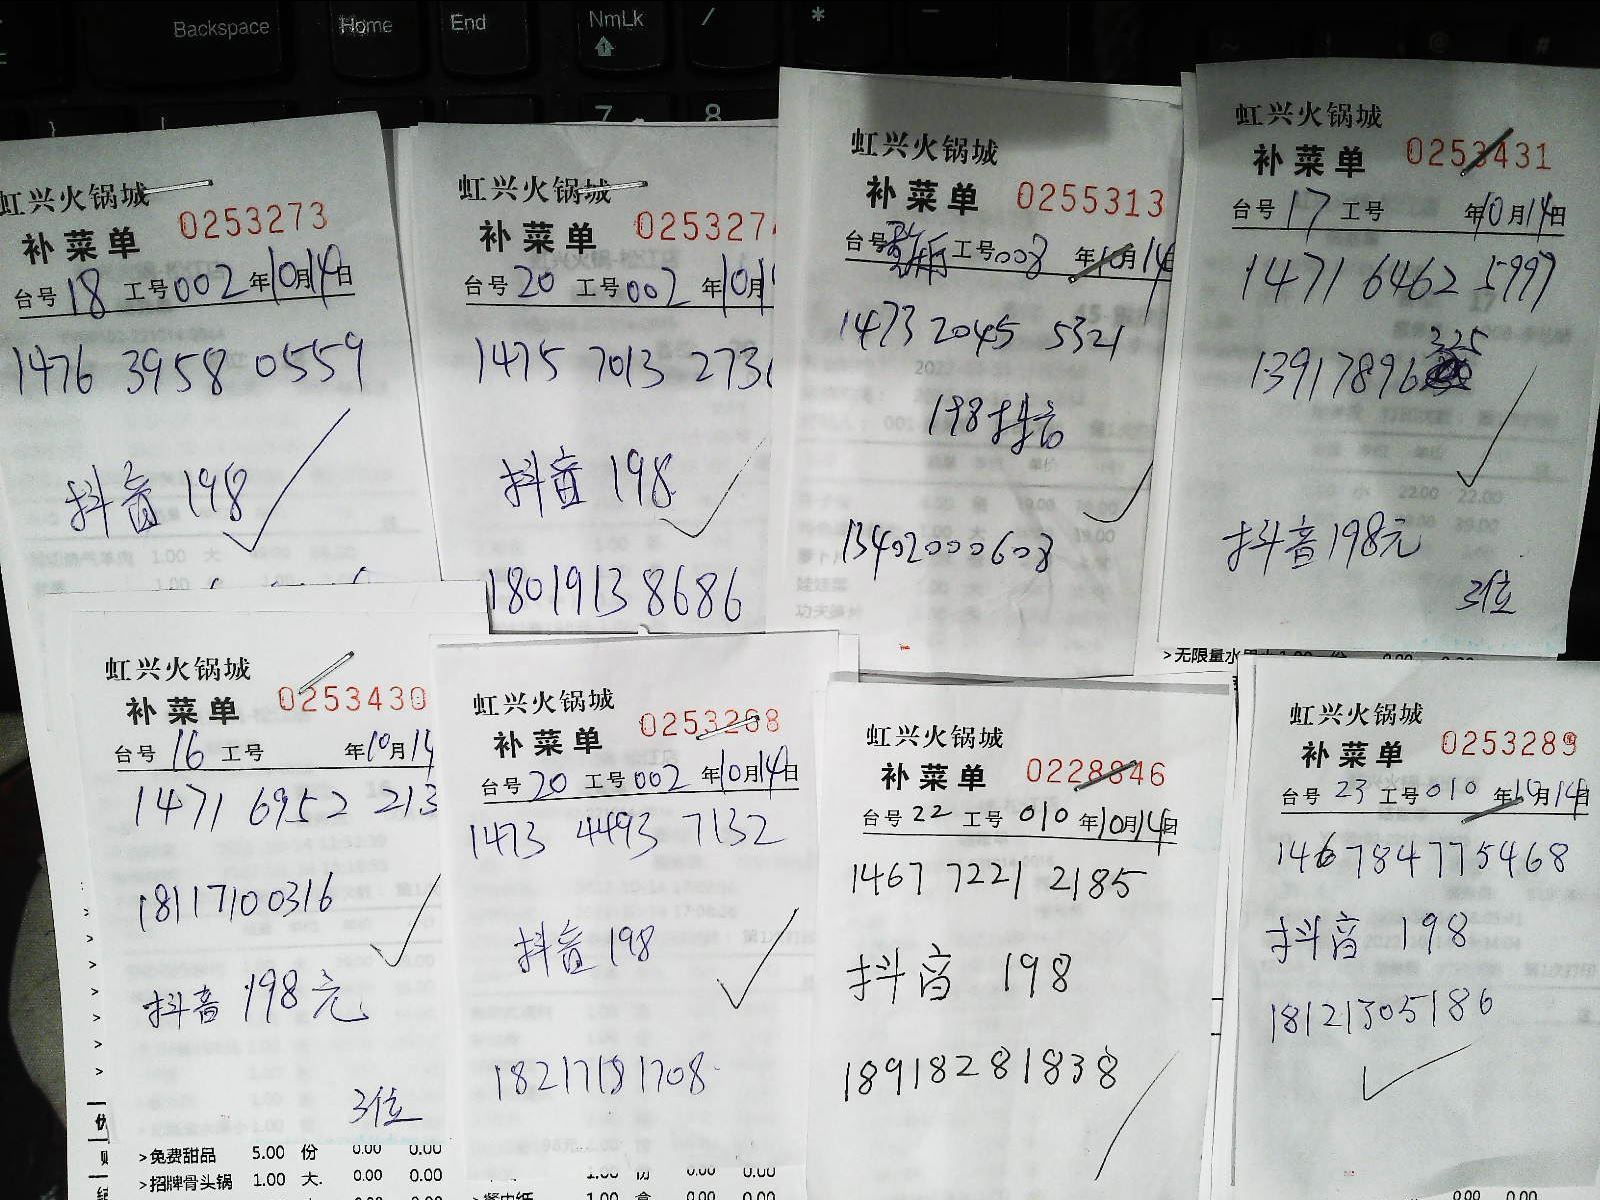 Backspace
Home
End
NmLk
/
*
7
8
虹兴火锅城
补菜单 0253273
台号 18 工号 002 年 10 月 14 日
1476 3958 0559
抖音 198
虹兴火锅城
补菜单 025327
台号 20 工号 002 年 10 月
1475 7013 273
抖音 198
18019138686
虹兴火锅城
补菜单 0255313
台号 工号 008 年 10 月 14
1473 2045 5321
198 抖音
13402000608
虹兴火锅城
补菜单 0253431
台号 17 工号 年 10 月 14 日
1471 6462 5997
13917896325
抖音 198元
3位
>无限量水
虹兴火锅城
补菜单 0253430
台号 16 工号 年 10 月 14
1471 6952 213
18117100316
抖音 198元
3位
>免费甜品 5.00 份 0.00 0.00
>招牌骨头锅 1.00 大. 0.00 0.00
虹兴火锅城
补菜单 0253288
台号 20 工号 002 年 10 月 14 日
1473 4493 7132
抖音 198
18217181708
虹兴火锅城
补菜单 0228846
台号 22 工号 010 年 10 月 14 日
1467 7221 2185
抖音 198
18918281838
虹兴火锅城
补菜单 0253289
台号 23 工号 010 年 10 月 14 日
1467 8477 5468
抖音 198
18121305186